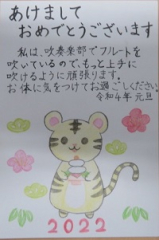 あけまして
おめでとうございます
私は、吹奏楽部でフルートを
吹いているので、もっと上手に
吹けるように頑張ります。
お体に気をつけてお過ごしください。
令和4年 元旦
2022